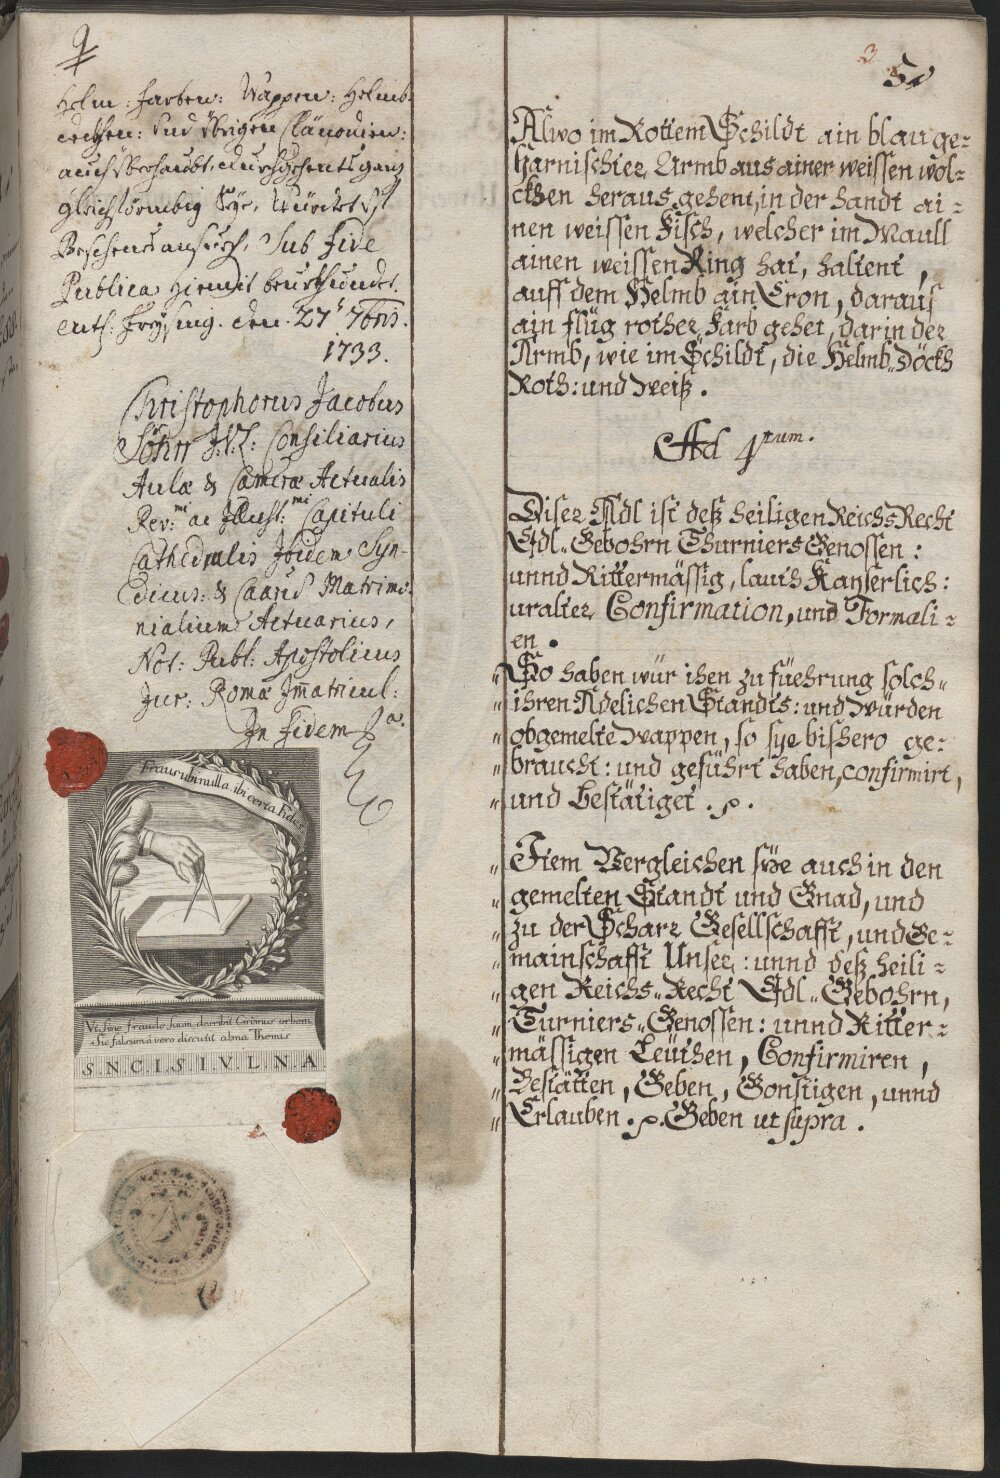 9
Helm: farben: Wappen: Helmb-
deckhen: Und übrigen Clänodien:
auch überhaubt, durchgehents ganz
gleichförmbig seye, würdet
Beschens ansuech, Sub fide
Publica hiemit beurkhundet.
Freysing. den. 27t 7bris.
1733.
Christophorus Jacobus
J.V.L: Consiliarius
Aulæ & Cameræ Actualis
Rev:mi ac Illust:mi Capituli
Cathedralis Ibidem Syn-
dicus: & Matrimo-
nialium Actuarius,
Not: Publ: Apostolicus
Jur: Romæ Immatricul:
In Fidem
Fraus ubi nulla ibi certa Fides
Vt sine fraude suum describit Circinus orbem
Sic falsum à vero discutit alma Themis
S.N.C.I.S.I.V.L.N.A
3
50
Alwo im Rottem Schildt ain blau ge-
harnischter Armb aus ainer weissen wol-
ckhen heraus gehent, in der handt ai-
nen weissen Fisch, welcher im Maull
ainen weissen Ring hat, haltent,
auff dem Helmb ain Cron, daraus
ain flüg rother Farb gehet, darin der
Armb, wie im Schildt, die Helmb Döckh
Roth: und weiß.
Ad 4tum.
Diser Adl ist deß heiligen Reichs Recht
Edl Gebohrn Thurniers Genossen:
unnd Rittermässig, lauth Kayserlich:
uralter Confirmation, und Formali-
en.
So haben wür ihen zu füehrung solch
ihren Adelichen Standts: und würden
obgemelte wappen, so sye bishero ge-
braucht: und geführt haben, confirmirt,
und bestätiget.
Item Vergleichen sye auch in den
gemelten Standt und Gnad, und
zu der Schar Gesellschafft, und Ge-
mainschafft Unser: unnd deß heili-
gen Reichs Recht Edl Gebohrn,
Turniers Genossen: unnd Ritter-
mässigen Leüthen, Confirmiren,
Bestätten, Geben, Gonstigen, unnd
Erlauben. Geben ut supra.